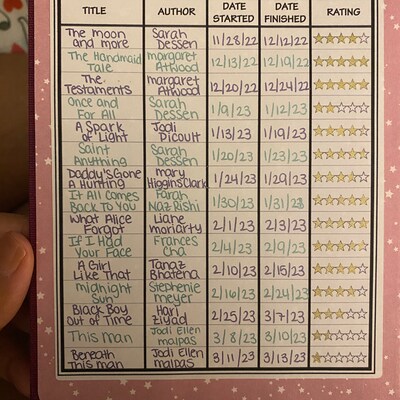 TITLE AUTHOR DATE STARTED DATE FINISHED RATING
The moon and more Sarah Dessen 11/28/22 12/12/22
The Handmaid Tale margaret Atwood 12/13/22 12/19/22
The Testaments margaret Atwood 12/20/22 12/24/22
Once and For All Sarah Dessen 1/9/23 1/12/23
A Spark of Light Jodi Picoult 1/13/23 1/19/23
Saint Anything Sarah Dessen 1/20/23 1/23/23
Daddy's Gone A Hunting mary Higgins Clark 1/24/23 1/29/23
It All Comes Back To You Farah Naz Rishi 1/30/23 1/31/23
What Alice Forgot Liane moriarty 2/1/23 2/3/23
If I Had Your Face Frances Cha 2/4/23 2/9/23
A Girl Like That Tanaz Bhatena 2/10/23 2/15/23
midnight Sun Stephenie meyer 2/16/23 2/24/23
Black Boy Out of Time Hari Ziyad 2/25/23 3/7/23
This man Jodi Ellen malpas 3/8/23 3/10/23
Beneath This man Jodi Ellen malpas 3/11/23 3/13/23